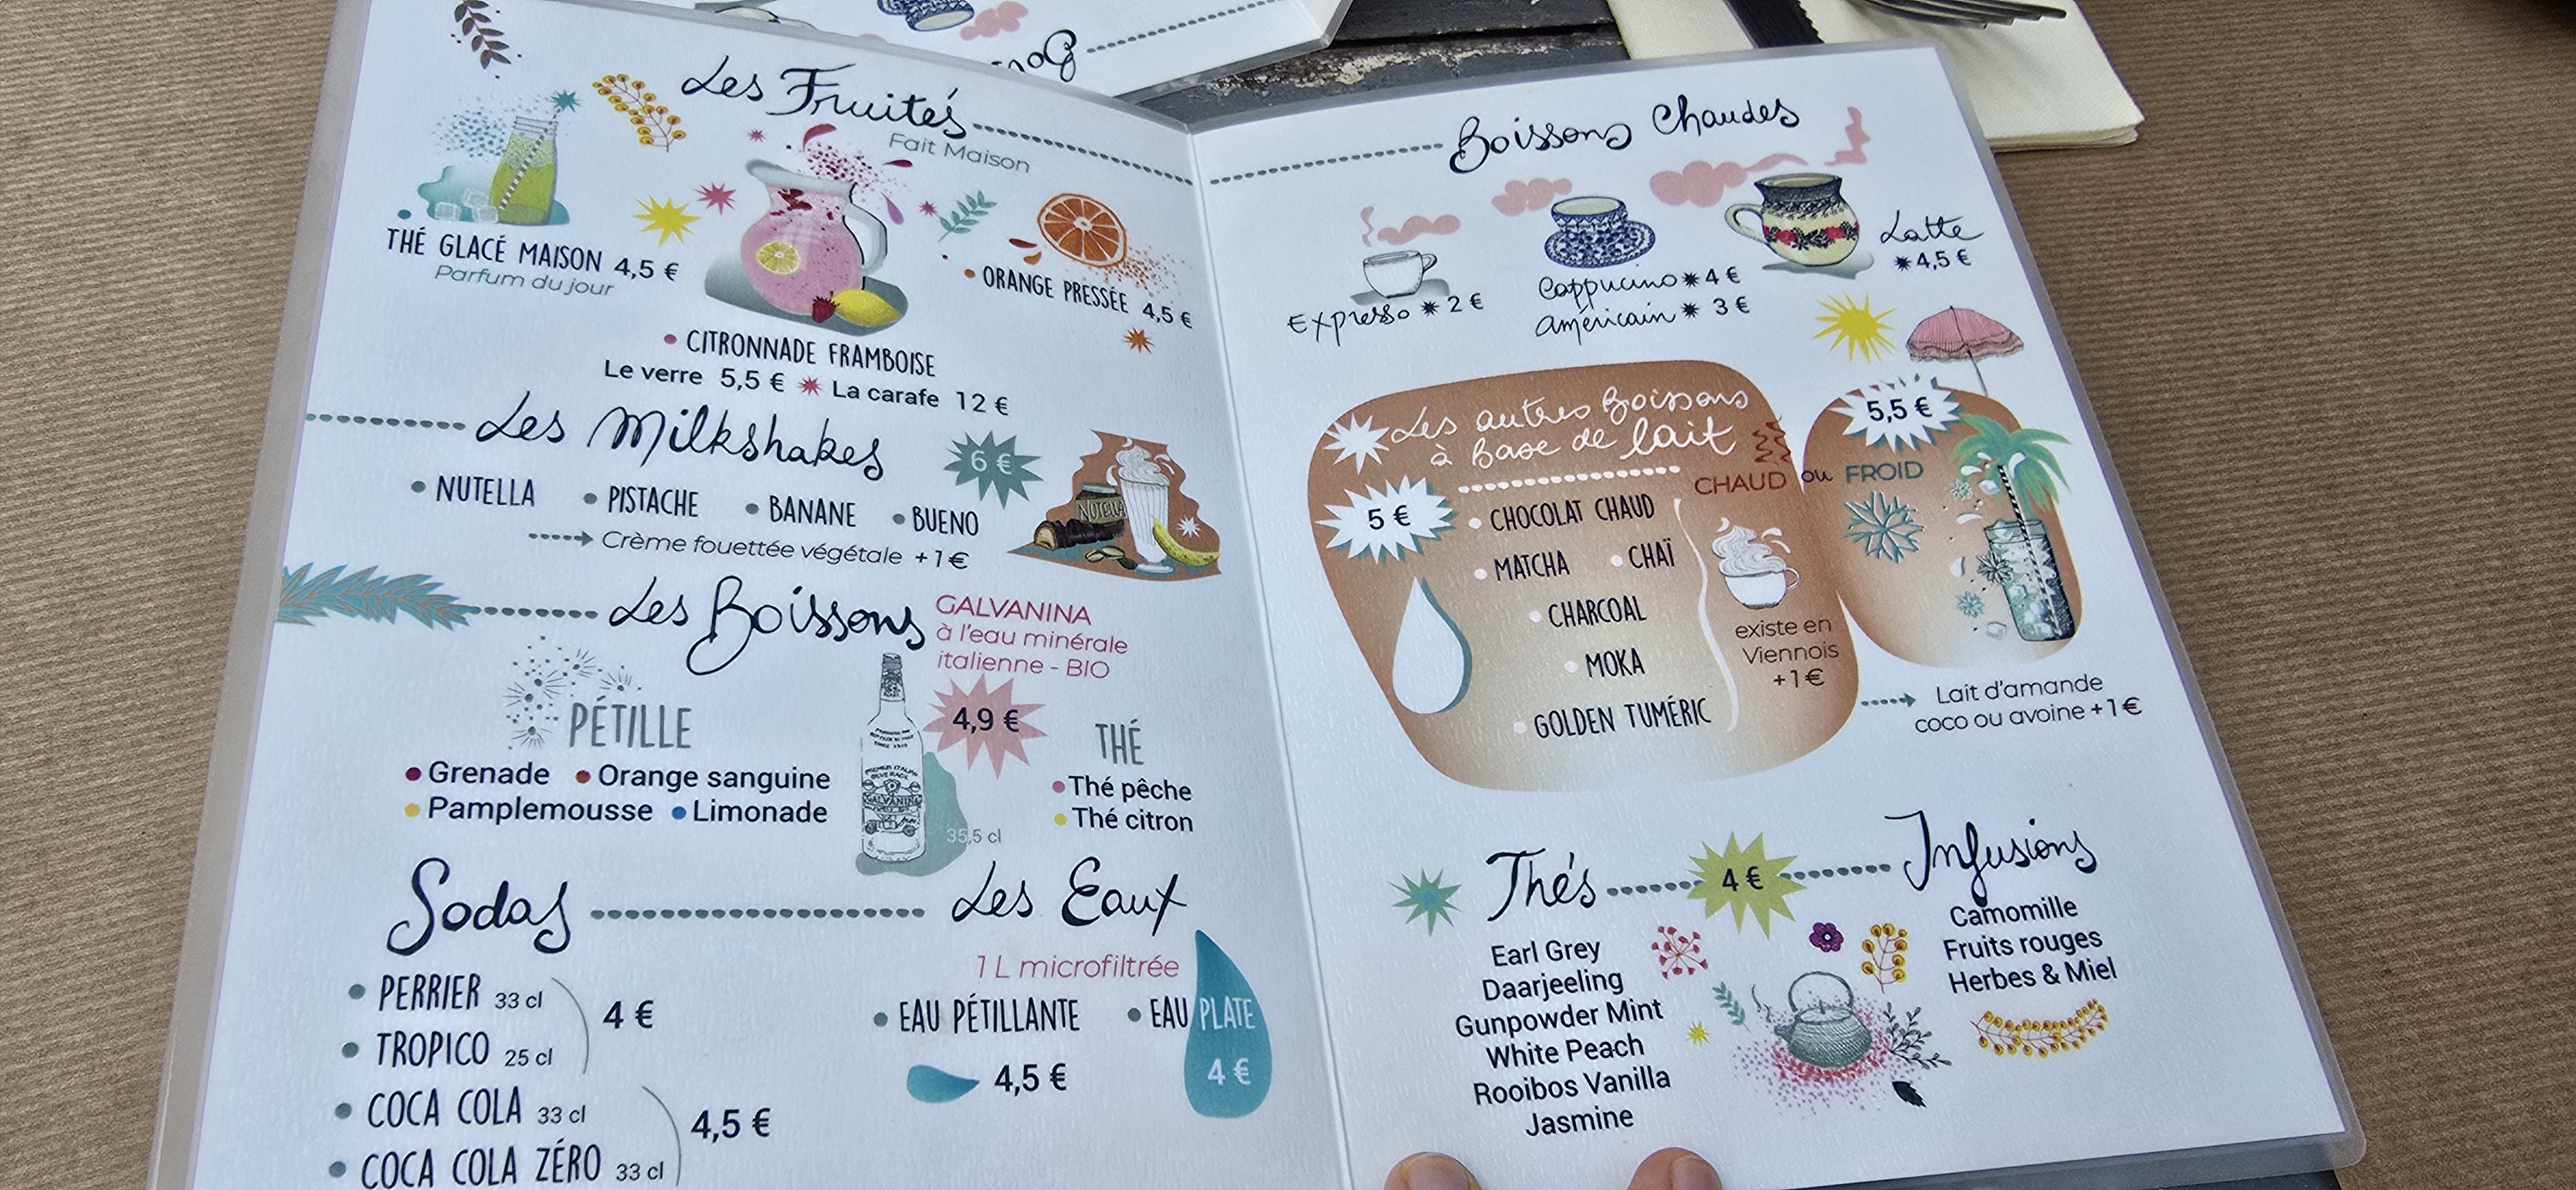 Les Fruités
Fait Maison
THÉ GLACÉ MAISON 4,5 €
Parfum du jour
ORANGE PRESSÉE 4,5 €
CITRONNADE FRAMBOISE
Le verre 5,5 € La carafe 12 €
Les Milkshakes
6 €
NUTELLA
PISTACHE
BANANE
BUENO
NUTELLA
Crème fouettée végétale +1€
Les Boissons
GALVANINA
à l'eau minérale
italienne - BIO
4,9 €
PÉTILLE
Grenade
Orange sanguine
Pamplemousse
Limonade
GALVANINA
35,5 cl
THÉ
Thé pêche
Thé citron
Sodas
PERRIER 33 cl
TROPICO 25 cl
4 €
COCA COLA 33 cl
COCA COLA ZÉRO 33 cl
4,5 €
Les Eaux
1 L microfiltrée
EAU PÉTILLANTE
4,5 €
EAU PLATE
4 €
Boissons Chaudes
Expresso 2 €
Cappucino 4 €
Américain 3 €
Latte
4,5 €
Les autres Boissons
à base de lait
CHAUD ou FROID
5 €
5,5 €
CHOCOLAT CHAUD
MATCHA
CHAÏ
CHARCOAL
MOKA
GOLDEN TUMÉRIC
existe en
Viennois
+1€
Lait d'amande
coco ou avoine +1€
Thés
4 €
Infusions
Earl Grey
Daarjeeling
Gunpowder Mint
White Peach
Rooibos Vanilla
Jasmine
Camomille
Fruits rouges
Herbes & Miel